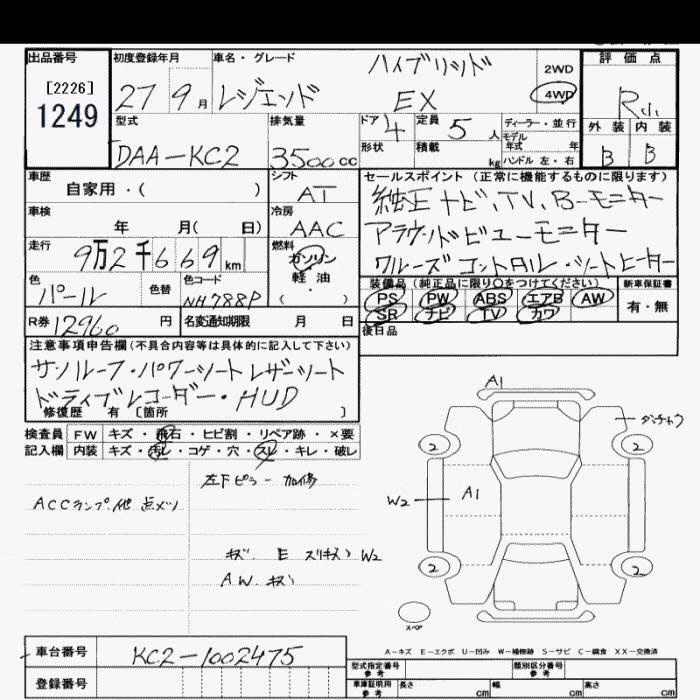 出品番号
[2226]
1249
初度登録年月
27 9月
車名・グレード
レジェンド
ハイブリッド
EX
2WD
4WD
評価点
R小
外装 内装
B B
型式
DAA-KC2
排気量
3500cc
ドア 4
形状
定員 5人
積載 kg
ディーラー・並行
モデル
年式 年
ハンドル 左・右
車歴
自家用・( )
シフト
AT
車検
年 月( 日)
冷房
AAC
走行
9万2千669km
燃料
ガソリン
軽油
・( )
色
パール
色替
色コード
NH788P
R券 12960円
名変通知期限 月 日
セールスポイント(正常に機能するものに限ります)
純正ナビ、TV、B-モニター
アラウンドビューモニター
クルーズコントロール・シートヒーター
装備品(純正品に限り○をつけてください)
PS PW ABS エアB AW
SR ナビ TV カワ
新車保証書
有・無
後日品
注意事項申告欄(不具合内容等は具体的に記入して下さい)
サンルーフ・パワーシートレザーシート
ドライブレコーダー・HUD
修復歴 有〔箇所 〕
検査員 FW キズ・飛石・ヒビ割・リペア跡・×要
記入欄 内装 キズ・汚レ・コゲ・穴・スレ・キレ・破レ
左Fピラー加修
ACCランプ他点メツ
キズ. E スリキズ W2
AW.キズ
A1
ダンチャク
2 2
W2 A1
2 2
スペア
A-キズ E-エクボ U-凹み W-補修跡 S-サビ C-腐食 XX-交換済
車台番号 KC2-1002475
登録番号
型式指定番号
参考
類別区分番号
参考
車庫証明用
参考
長さ cm 幅 cm 高さ cm